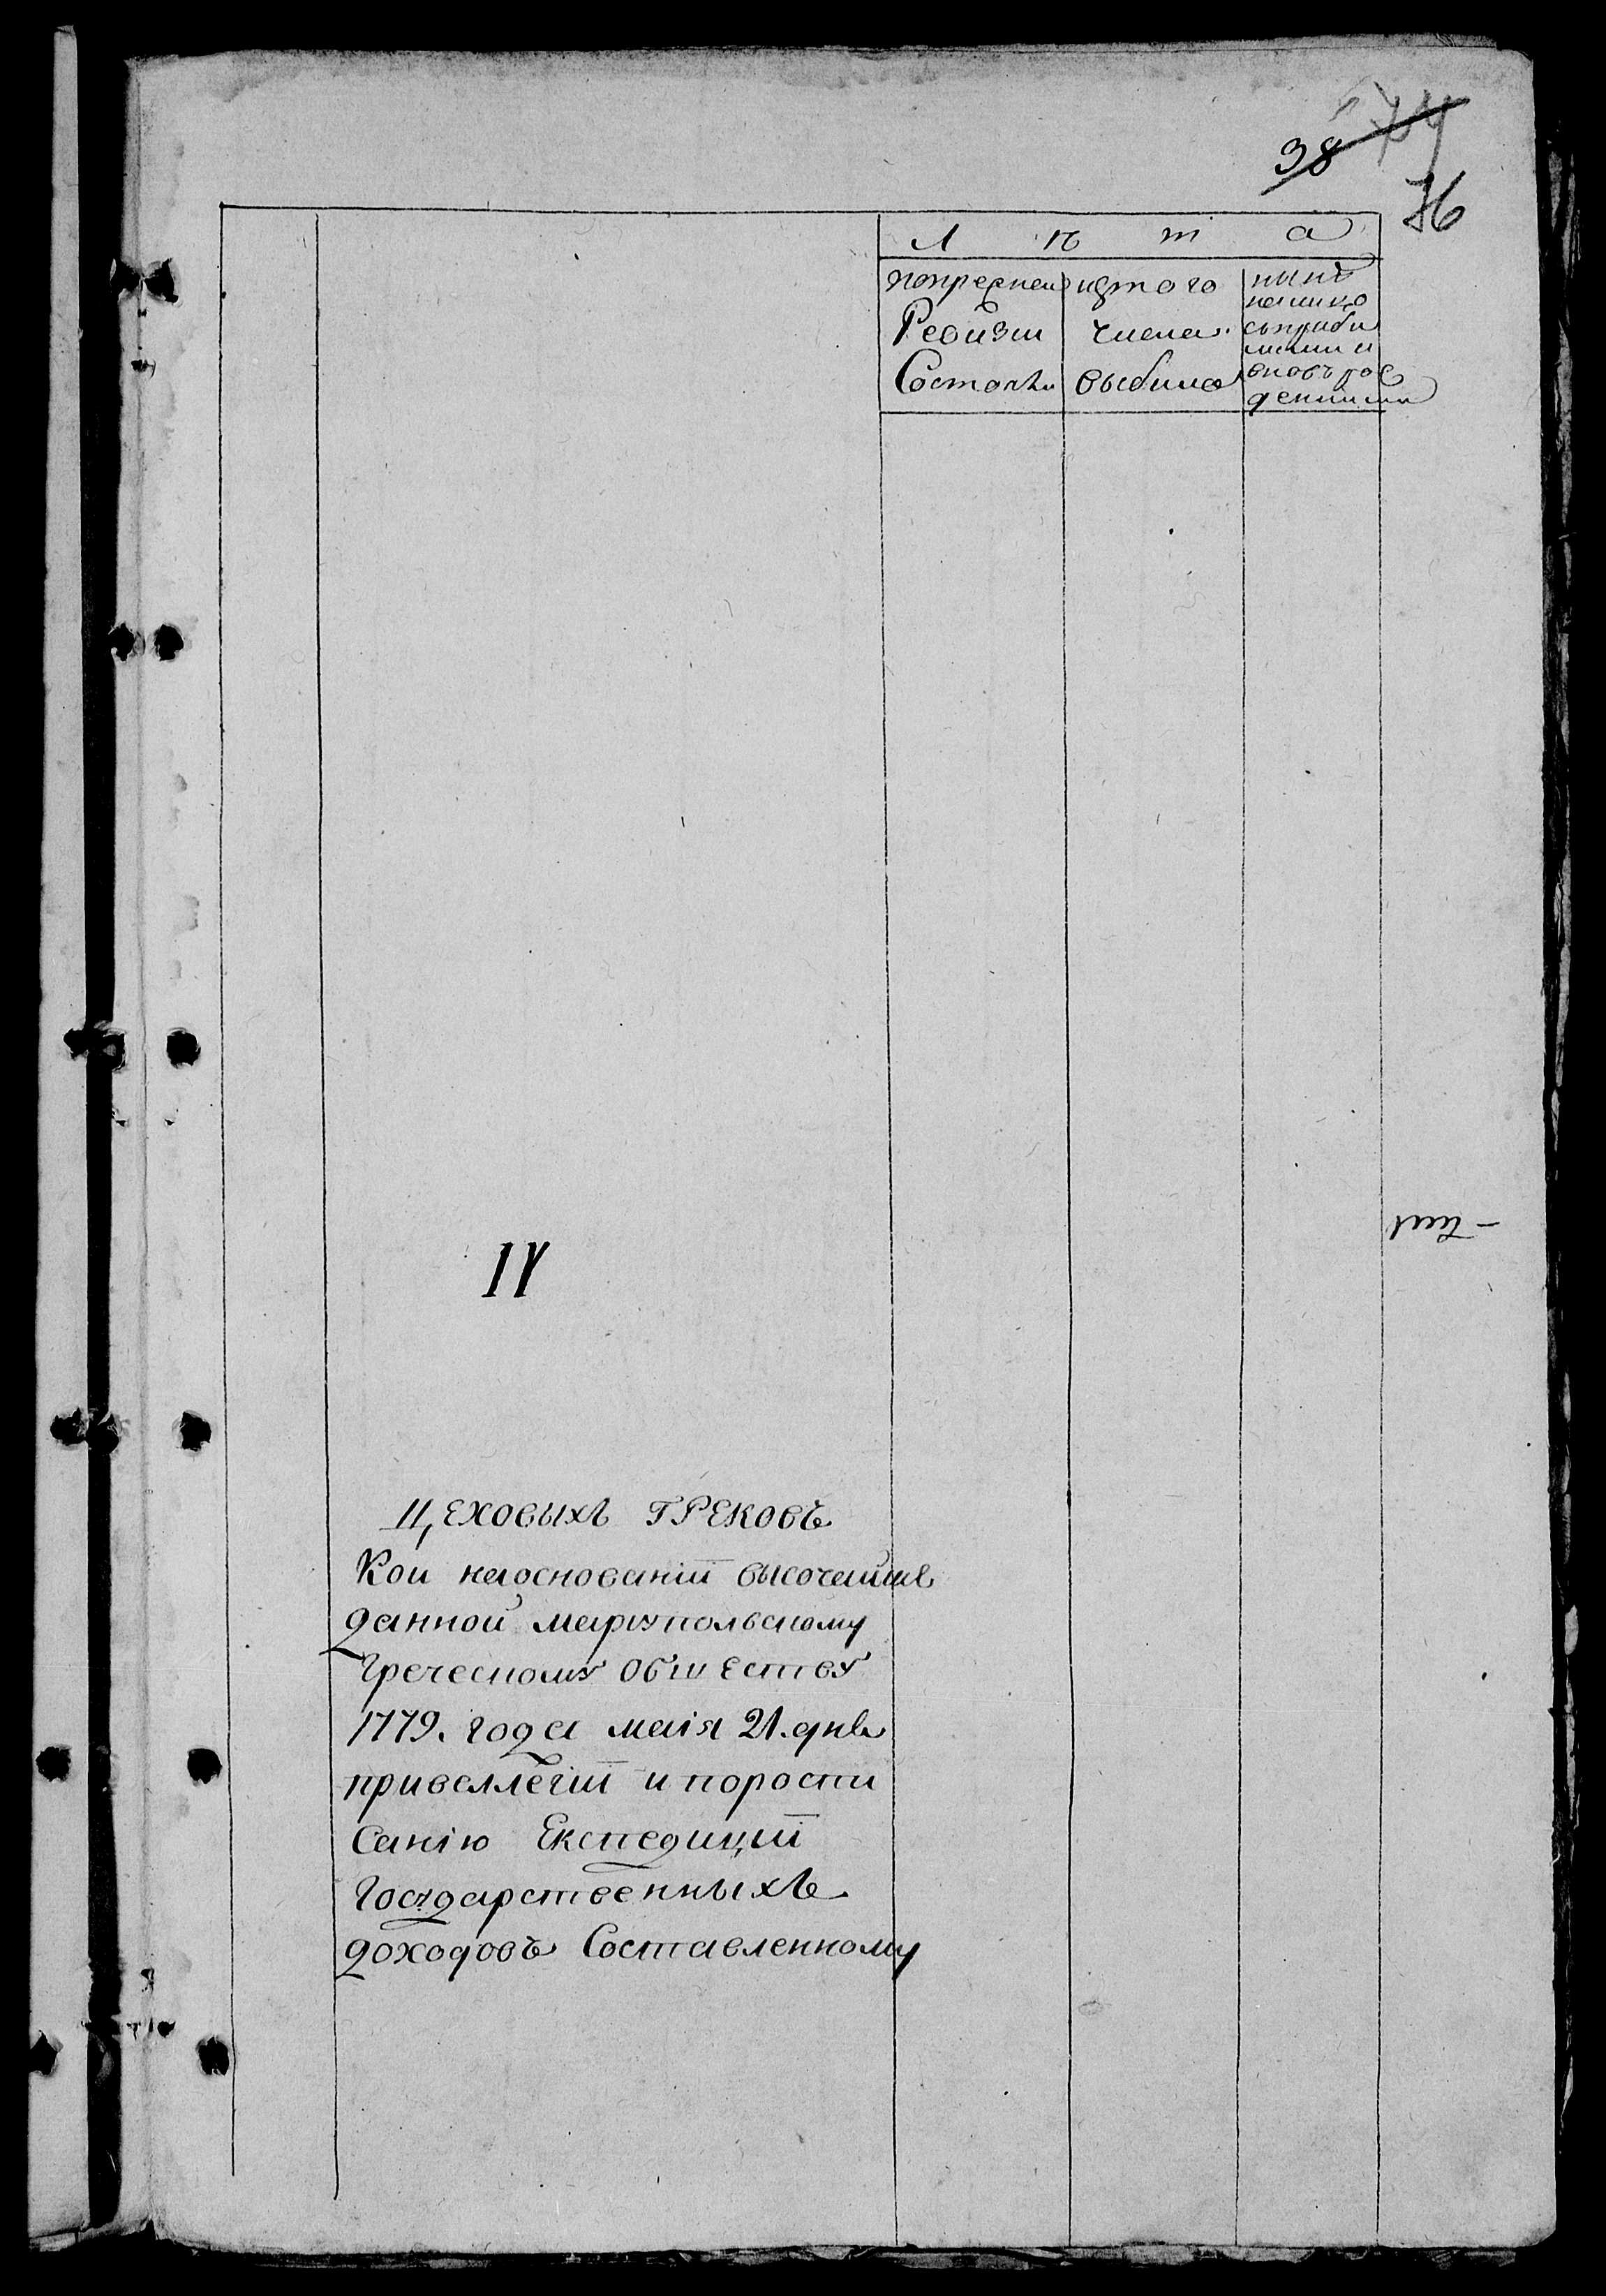 38
76
Лѣта
попрежнеи
Ревизии
Состояли
истого
числа
выбыло
нынѣ
налицо
сприбы
лыми и
вновь рож
денными
IV
Цеховыхъ Грековъ
Кои наоснованіи высочайше
данной мариупольскому
Греческому Обществу
1779. года маія 21. дня
привеллегіи и пороспи
санію Експедиціи
Государственныхъ
доходовъ Составленному